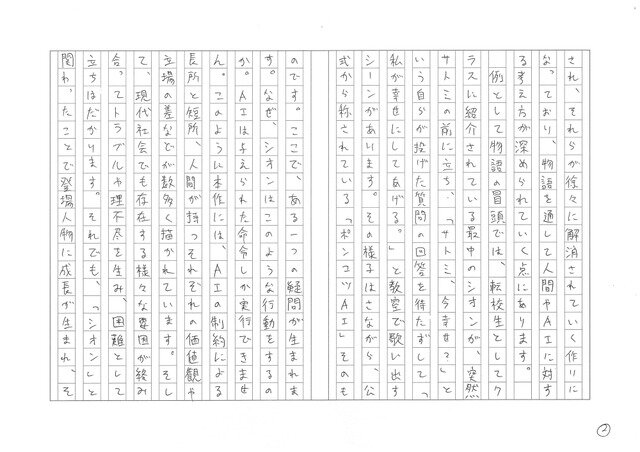 され、それらが徐々に解消されていく作りに
なっており、物語を通して人間やAIに対す
る考え方が深められていく点にあります。
例として物語の冒頭では、転校生としてク
ラスに紹介されている最中のシオンが、突然
サトミの前に立ち、「サトミ、今幸せ?」と
いう自らが投げた質問の回答を待たずして「
私が幸せにしてあげる。」と教室で歌い出す
シーンがあります。その様子はさながら、公
式から称されている「ポンコツAI」そのも
のです。ここで、ある一つの疑問が生まれま
す。なぜ、シオンはこのような行動をするの
か。AIは与えられた命令しか実行できませ
ん。このように本作には、AIの制約による
長所と短所、人間が持つそれぞれの価値観や
立場の差などが数多く描かれています。そし
て、現代社会でも存在する様々な要因が絡み
合ってトラブルや理不尽を生み、困難として
立ちはだかります。それでも、「シオン」と
関わったことで登場人物に成長が生まれ、そ
②